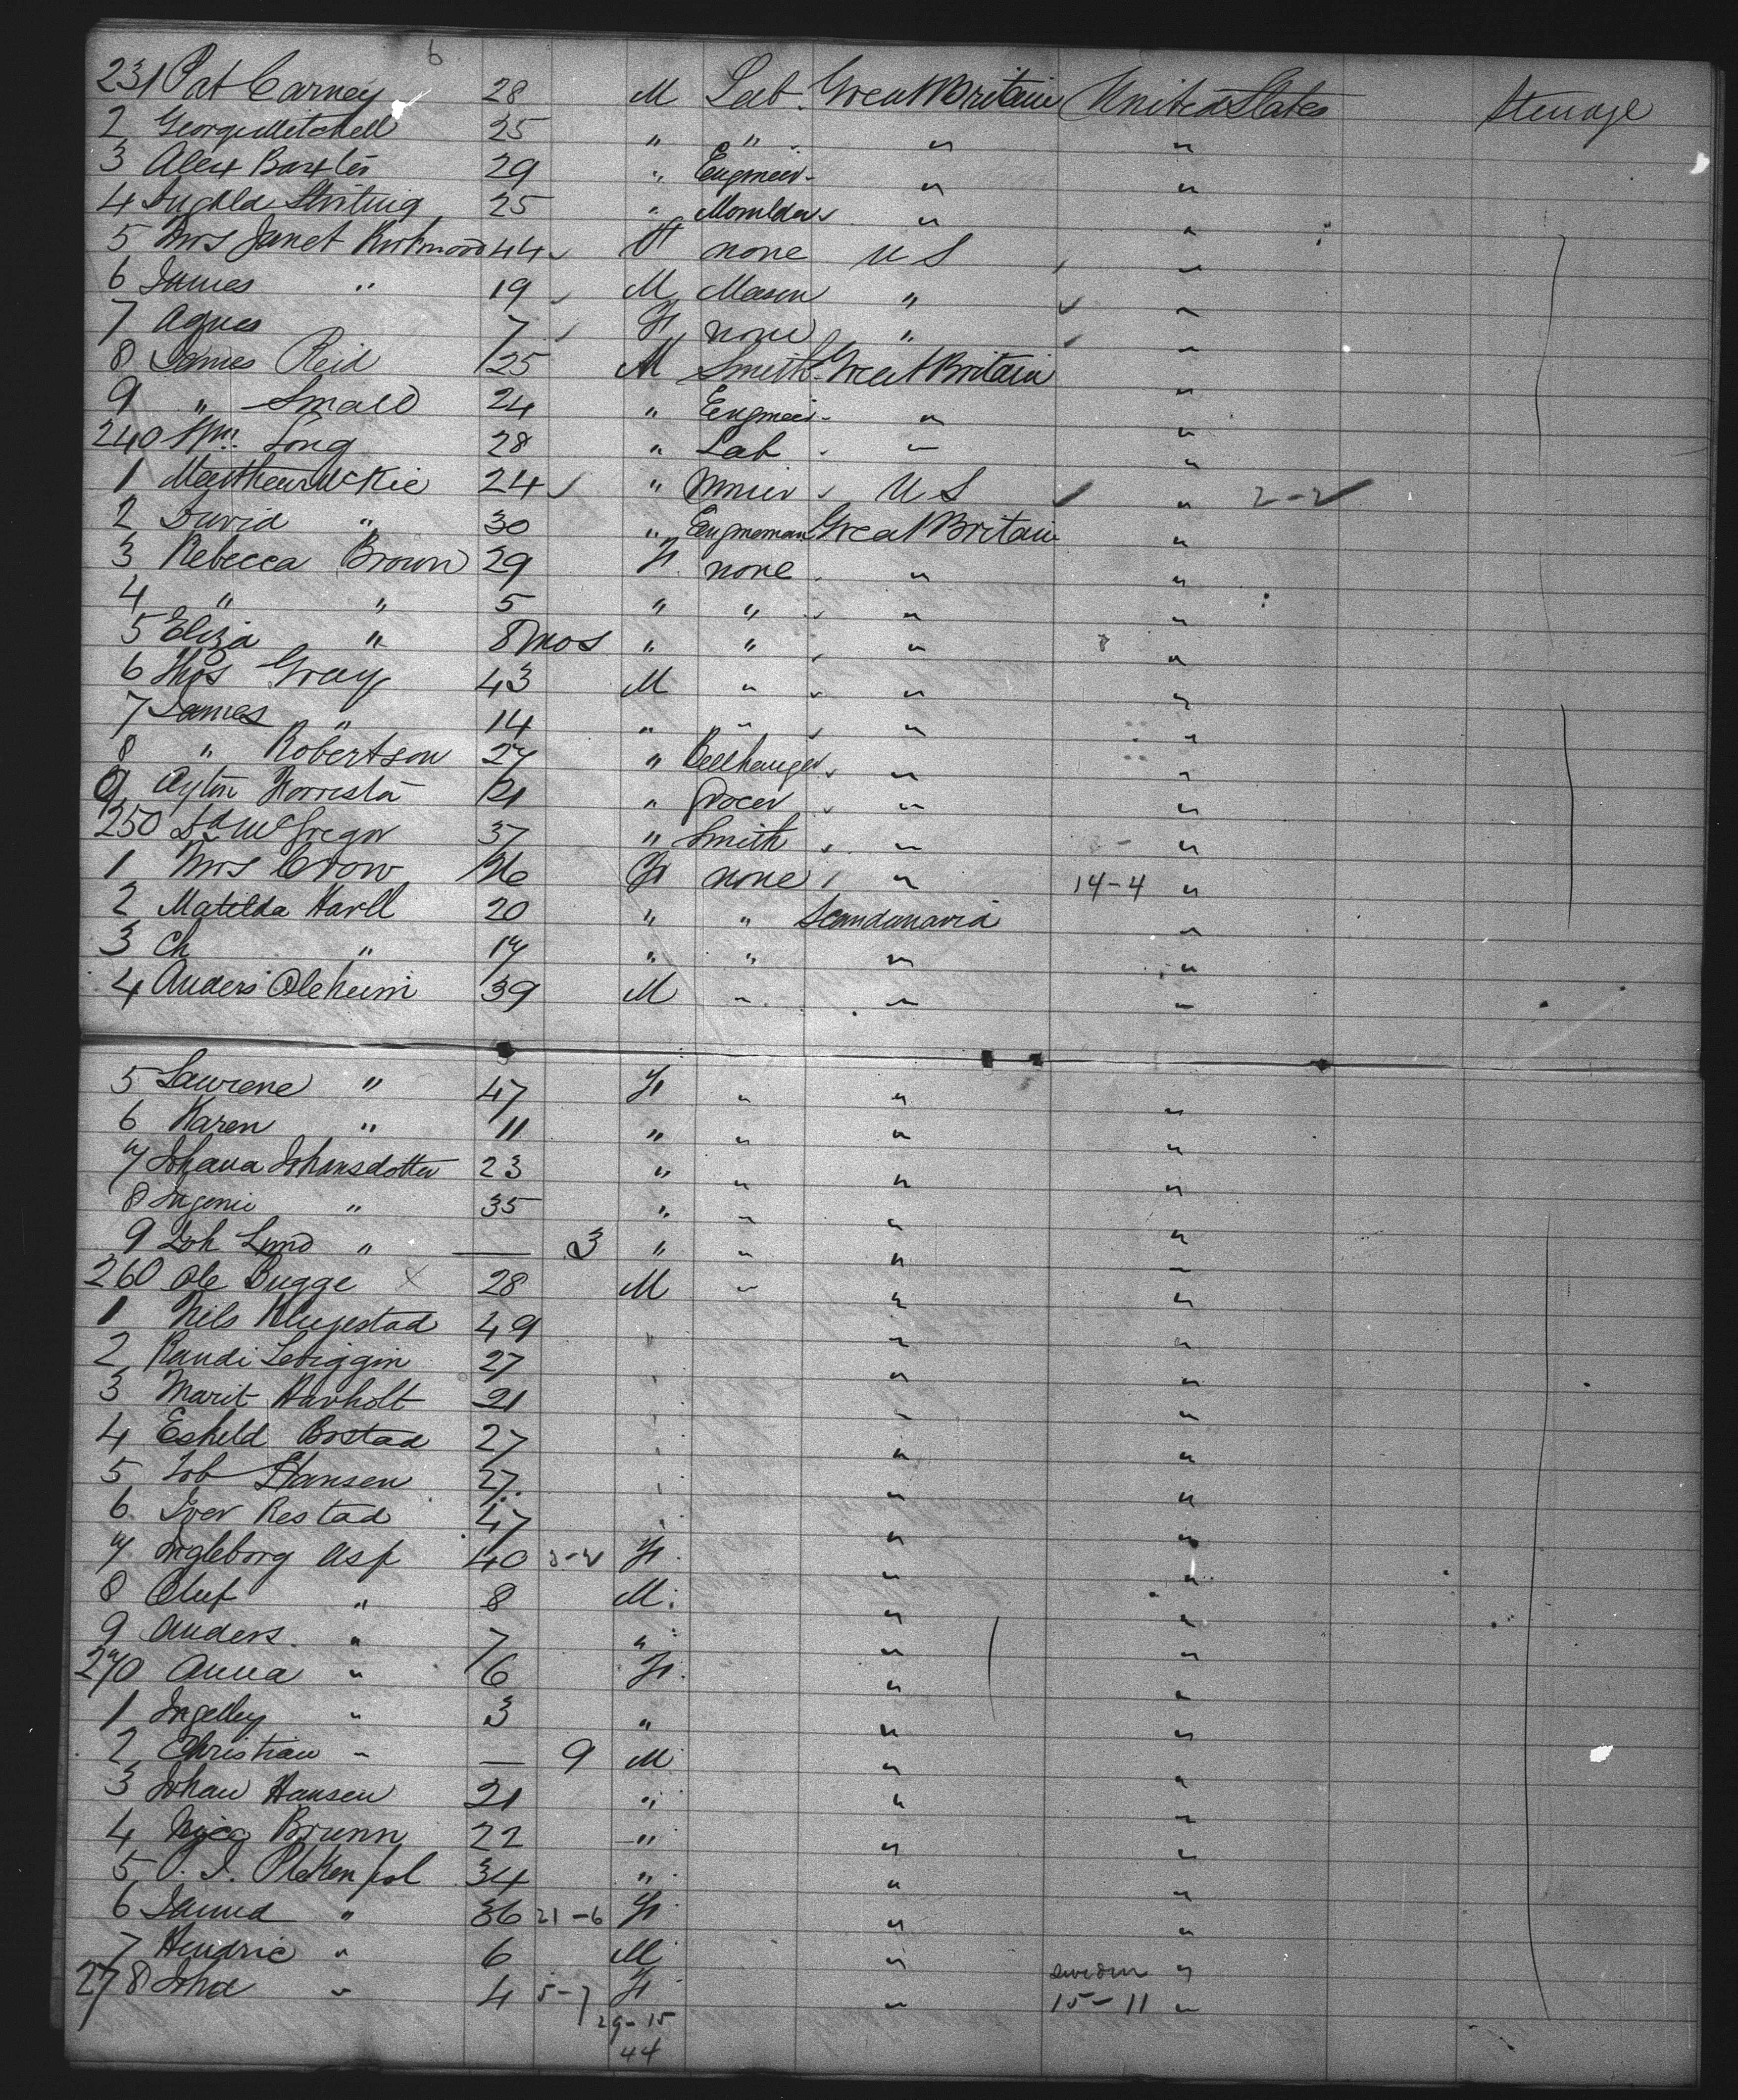 6
231 Pat Carney 28 M Lab. Great Britain United States Steerage
2 George Mitchell 25 " " " "
3 Alex Baxter 29 " Engineer " "
4 25 " Moulder " "
5 Mrs Janet 44 F none U S "
6 James " 19 M Mason " "
7 Agnes 7 F none " "
8 James Reid 25 M Smith Great Britain "
9 " Small 24 " Engineer " "
240 Wm. Long 28 " Lab " "
1 Matthew McKie 24 " Miner U S " 2-2
2 David " 30 " Engineman Great Britain "
3 Rebecca Brown 29 F none " "
4 " " 5 " " " "
5 Eliza " 8 mos " " " "
6 Thos Gray 43 M " " "
7 James " 14 " " " "
8 " Robertson 27 " Bellhanger " "
9 21 " Grocer " "
250 McGregor 37 " Smith " "
1 Mrs Crow F none " 14-4 "
2 Matilda 20 " " Scandanavia "
3 Ch " 17 " " " "
4 Anders Oleheim 39 M " " "
5 Laurene " 47 F " " "
6 Karen " 11 " " " "
7 Johana Johansdotter 23 " " " "
8 " 35 " " " "
9 Joh Lund " — 3 " " " "
260 Ole Bugge x 28 M " " "
1 Nils 49 " " "
2 Randi 27 " " "
3 Marit Havholt 21 " " "
4 Eskeld Bostad 27 " " "
5 Job Hansen 27 " " "
6 Iver Restad 47 " " "
7 Ingleborg Asp 40 F " "
8 Oluf " 8 M " "
9 Anders " 7 " " "
270 Anna " 6 F " "
1 " 3 " " "
2 Christian " — 9 M " "
3 Johan Hansen 21 " " "
4 Brunn 22 " " "
5 34 " " "
6 " 36 21-6 F " "
7 Hendric " 6 M " Sweden "
278 " 4 5-7 F " 15-11 "
29-15
44